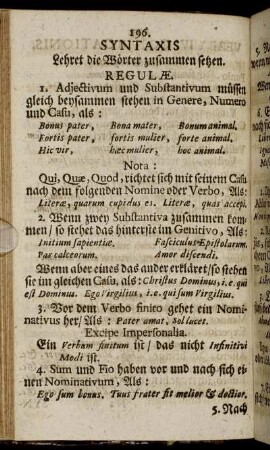 196.
SYNTAXIS
Lehret die Wörter zusammen setzen.
REGULÆ.
1. Adjectivum und Substantivum müssen
gleich beysammen stehen in Genere, Numero
und Casu, als:
Bonus pater, Bona mater, Bonum animal.
Fortis pater, fortis mulier, forte animal.
Hic vir, hæc mulier, hoc animal.
Nota:
Qui, Quæ, Quod, richtet sich mit seinem Casu
nach dem folgenden Nomine oder Verbo, Als:
Literæ, quarum cupidus es. Literæ, quas accepi.
2. Wenn zwey Substantiva zusammen kom-
men / so stehet das hinterste im Genitivo, Als:
Initium sapientiæ. Fasciculus Epistolarum.
Par calceorum. Amor discendi.
Wenn aber eines das ander erkläret / so stehen
sie im gleichen Casu, als: Christus Dominus, i.e. qui
est Dominus. Ego Virgilius, i.e. qui sum Virgilius.
3. Vor dem Verbo finito gehet ein Nomi-
nativus her / Als: Pater amat, Sol lucet.
Excipe Impersonalia.
Ein Verbum finitum ist / das nicht Infinitivi
Modi ist.
4. Sum und Fio haben vor und nach sich ei-
nen Nominativum, Als:
Ego sum bonus. Tuus frater fit melior & doctior.
5. Nach